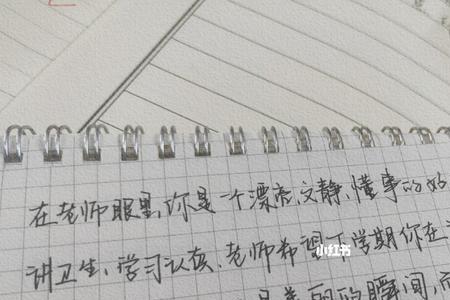 在老师眼里,你是一个漂亮、文静、懂事的好
讲卫生、学习认真、老师希望下学期你在
小红书
是美丽的瞬间,而